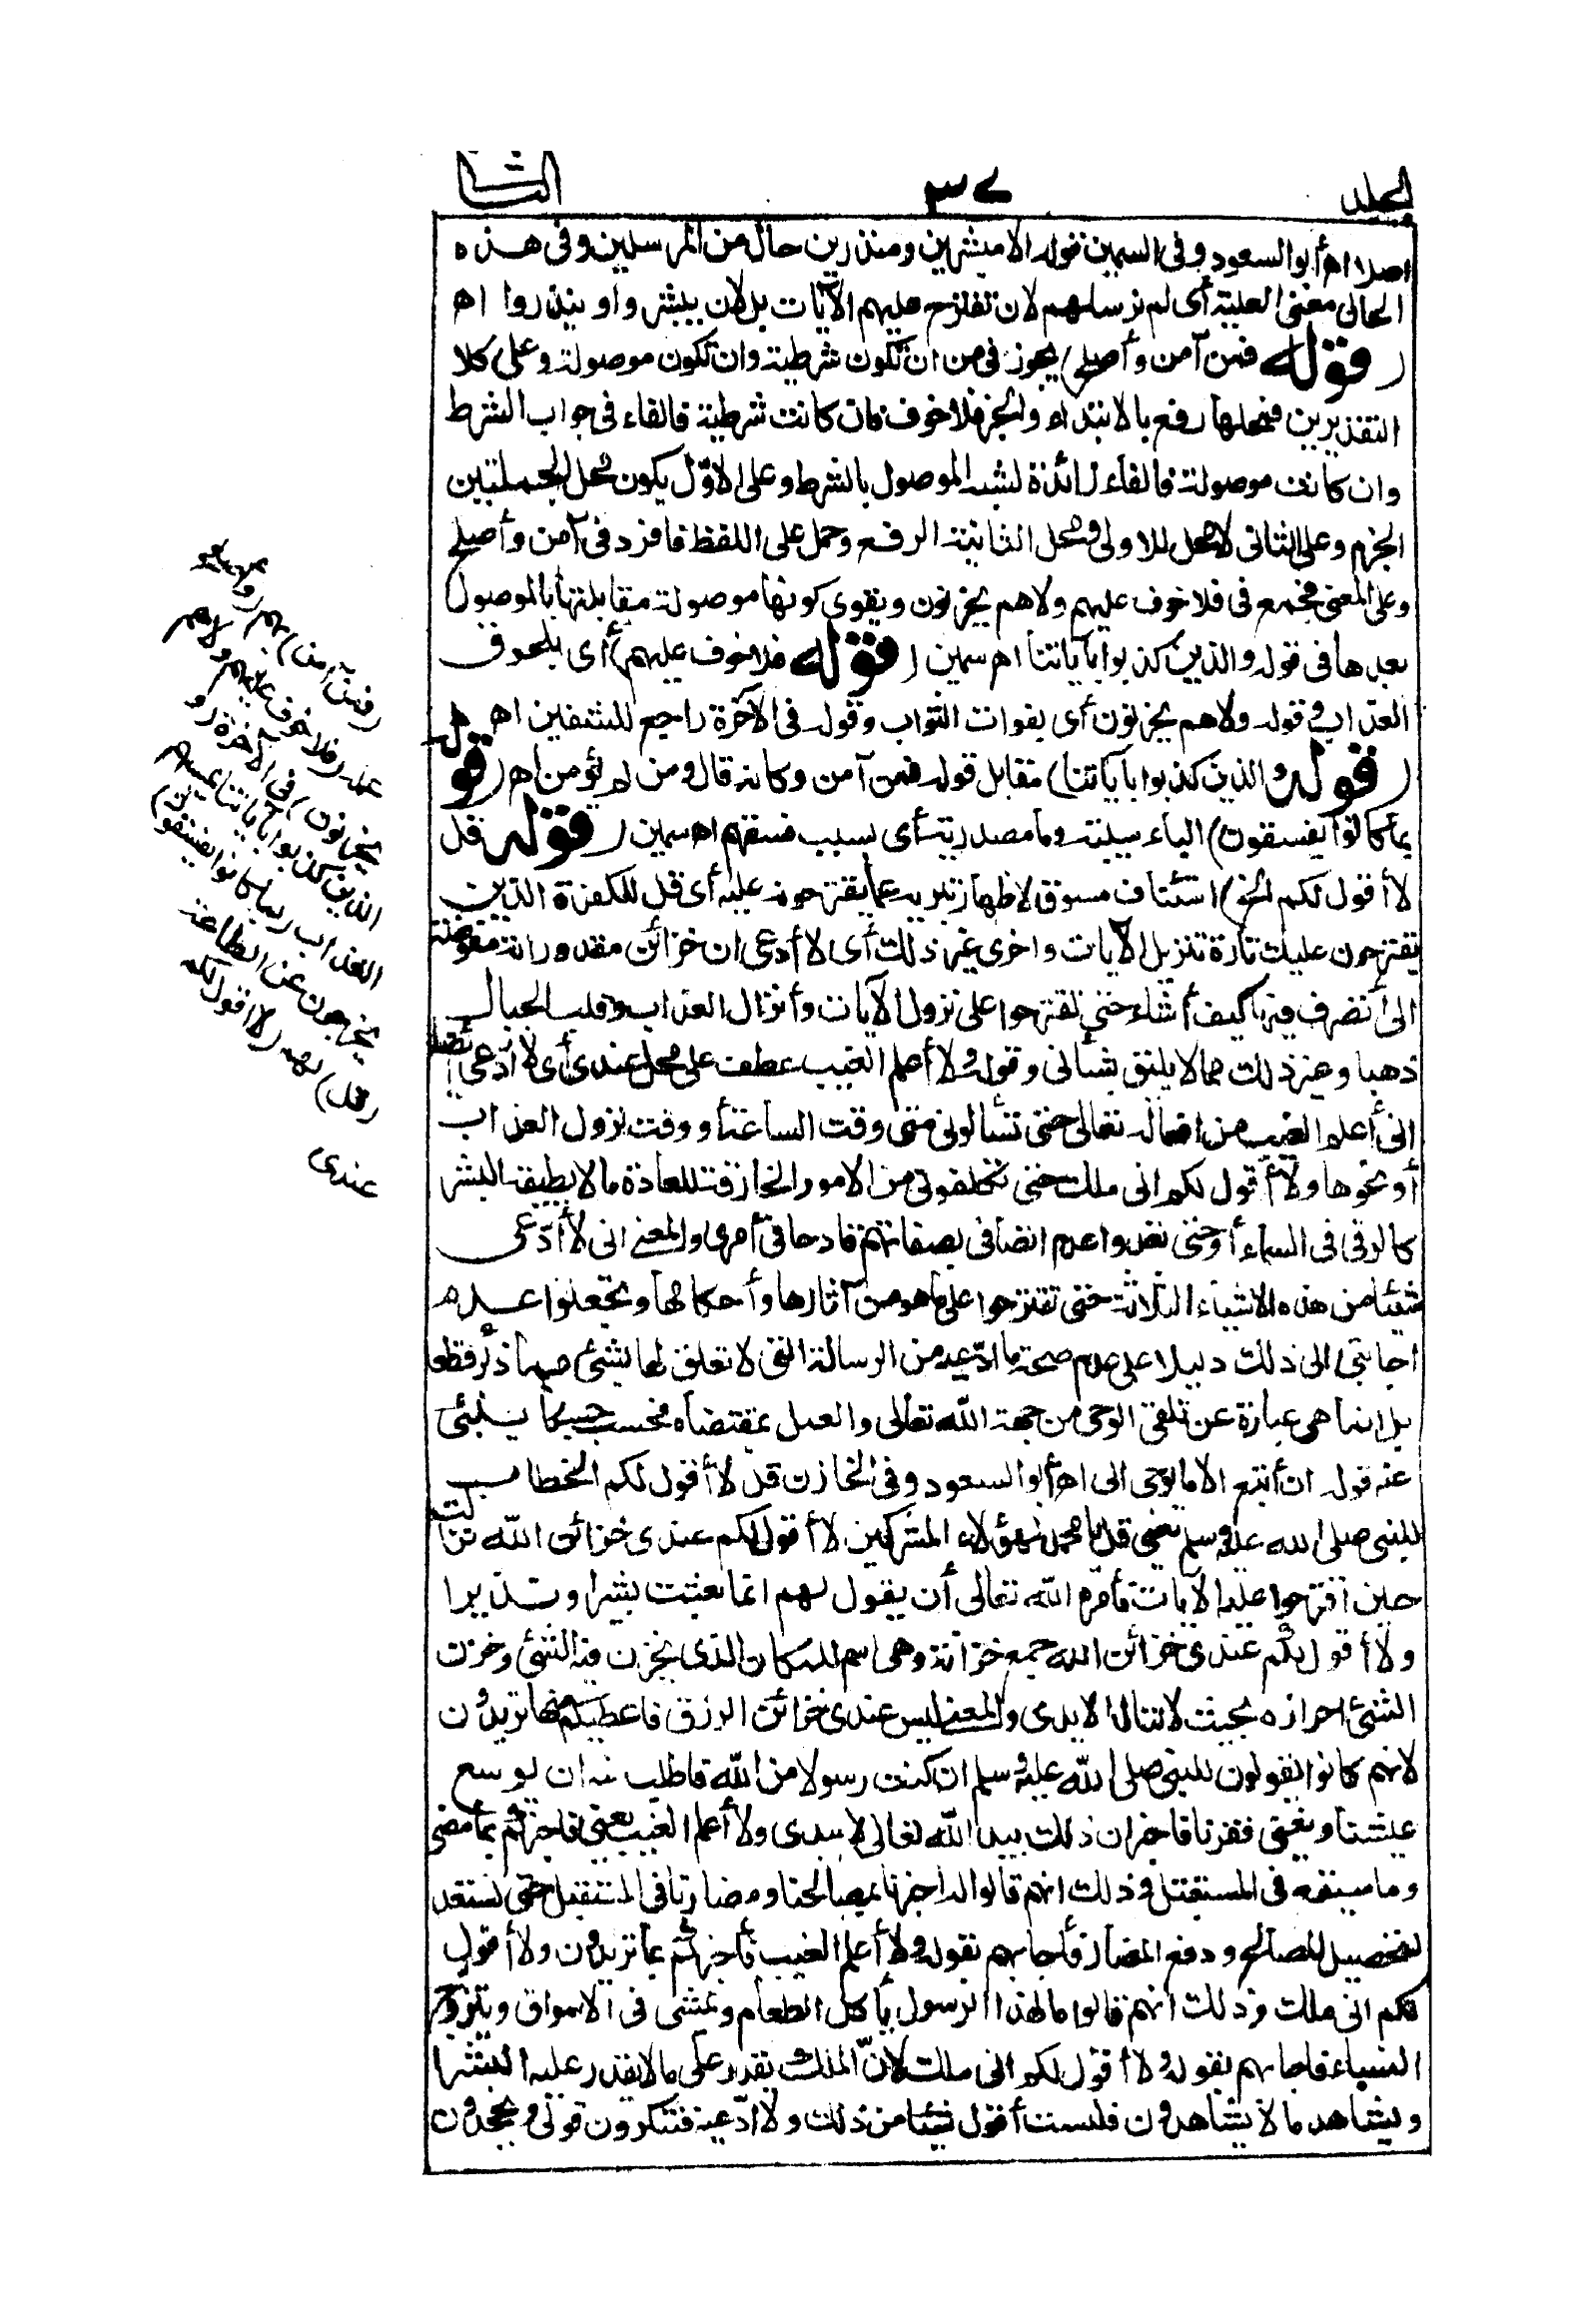 المجلد
٣٧
الثانى
اصلا اه أبو السعود وفى السمين قوله الا مبشرين ومنذرين حال من المرسلين وفى هذه
الحال معنى العلية أى لم نرسلهم لان تقترح عليهم الآيات بل لان يبشروا وينذروا اه
(قوله فمن آمن وأصلح) يجوز فى من ان تكون شرطية وان تكون موصولة وعلى كلا
التقديرين فمحلها رفع بالابتداء والخبر فلا خوف فان كانت شرطية فالفاء فى جواب الشرط
وان كانت موصولة فالفاء زائدة لشبه الموصول بالشرط وعلى الاوّل يكون محل الجملتين
الجزم وعلى الثانى لا محل للاولى ومحل الثانية الرفع وحمل على اللفظ فافرد فى آمن وأصلح
وعلى المعنى فجمع فى فلا خوف عليهم ولا هم يحزنون ويقوى كونها موصولة مقابلتها بالموصول
بعدها فى قوله والذين كذبوا بآياتنا اه سمين (قوله فلا خوف عليهم) أى بلحوق
العذاب وقوله ولا هم يحزنون أى بفوات الثواب وقوله فى الآخرة راجع للمنفيين اه
(قوله والذين كذبوا بآياتنا) مقابل قوله فمن آمن وكانه قال ومن لم يؤمن اه (قوله
بما كانوا يفسقون) الباء سببية وما مصدرية أى بسبب فسقهم اه سمين (قوله قل
لا أقول لكم الخ) استئناف مسوق لاظهار تبريه عما يقترحونه عليه أى قل للكفرة الذين
يقترحون عليك تارة تنزيل الآيات واخرى غير ذلك أى لا أدعى ان خزائن مقدوراته مفوضة
الىّ أتصرف فيها كيف أشاء حتى تقترحوا على نزول الآيات وأنزال العذاب وقلب الجبال
ذهبا وغير ذلك مما لا يليق بشأنى وقوله ولا أعلم الغيب عطف على محل عندى أى لا أدّعى أيضا
انى أعلم الغيب من افعاله تعالى حتى تسألونى متى وقت الساعة أو وقت نزول العذاب
أو نحوها ولا أقول لكم انى ملك حتى تكلفونى من الامور الخارقة للعادة ما لا يطيقه البشر
كالرقى فى السماء أو حتى تعدوا عدم اتصافى بصفاتهم قادحا فى أمرى والمعنى انى لا أدّعى
شيئا من هذه الاشياء الثلاثة حتى تقترحوا على ما هو من آثارها وأحكامها وتجعلوا عدم
اجابتى الى ذلك دليلا على عدم صحة ما ادّعيه من الرسالة التى لا تعلق لها بشئ مما ذكر قطعا
بل انما هى عبارة عن تلقى الوحى من جهة الله تعالى والعمل بمقتضاه فحسب حسبما ينبئ
عنه قوله ان أتبع الا ما يوحى الى اه أبو السعود وفى الخازن قل لا أقول لكم الخطاب
للنبى صلى الله عليه وسلم يعنى قل يا محمد لهؤلاء المشركين لا أقول لكم عندى خزائن الله نزلت
حين اقترحوا عليه الآيات فأمره الله تعالى أن يقول لهم انما بعثت بشيرا ونذيرا
ولا أقول لكم عندى خزائن الله جمع خزانة وهى اسم للمكان الذى يخزن فيه الشئ وخزن
الشئ احرازه بحيث لا تناله الايدى والمعنى ليس عندى خزائن الرزق فاعطيكم منها تريدون
لانهم كانوا يقولون للنبى صلى الله عليه وسلم ان كنت رسولا من الله فاطلب منه ان يوسع
عيشنا ويغنى فقرنا فاخبر ان ذلك بيد الله تعالى لا بيدى ولا أعلم الغيب يعنى فاخبركم بما مضى
وما سيقع فى المستقبل وذلك انهم قالوا له اخبرنا بمصالحنا ومضارنا فى المستقبل حتى نستعد
لتحصيل المصالح ودفع المضار فأجابهم بقوله ولا أعلم الغيب فأخبركم بما تريدون ولا أقول
لكم انى ملك وذلك انهم قالوا ما لهذا الرسول يأكل الطعام ويمشى فى الاسواق ويتزوج
النساء فاجابهم بقوله ولا أقول لكم انى ملك لانّ الملك يقدر على ما لا يقدر عليه البشر
ويشاهد ما لا يشاهدون فلست أقول شيئا من ذلك ولا ادّعيه فتنكرون قولى وتجحدون
(فمن آمن) بهم (وأصلح)
عمله (فلا خوف عليهم ولا هم
يحزنون) فى الآخرة (و
الذين كذبوا بآياتنا يمسهم
العذاب بما كانوا يفسقون)
يخرجون عن الطاعة
(قل) لهم (لا أقول لكم
عندى